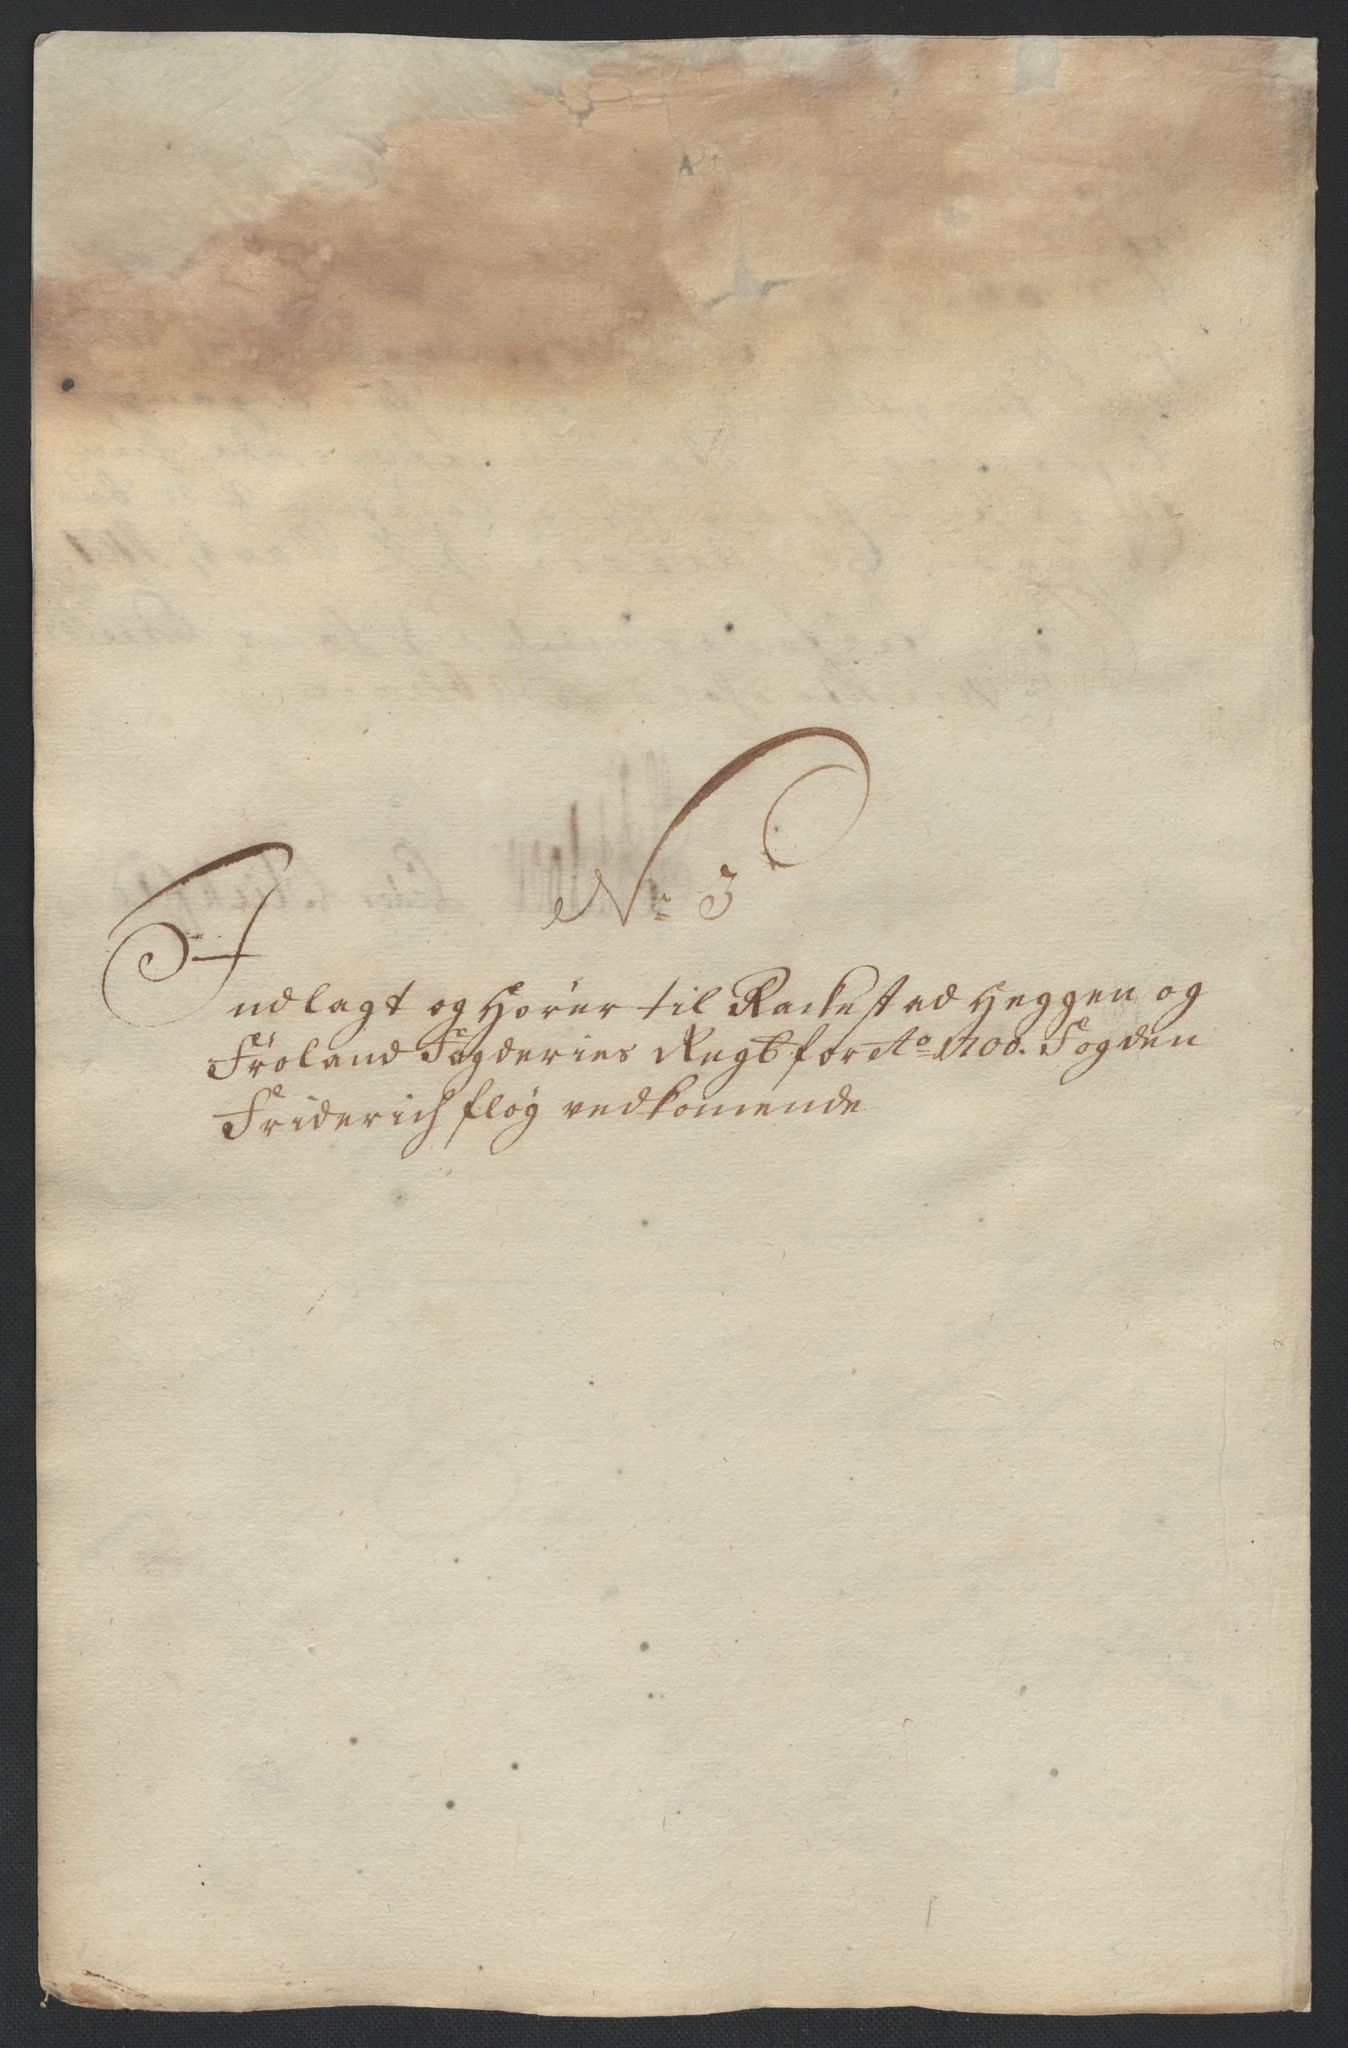 No 3
Indlagt og Hører til Rackestad Heggen og
Frøland Fogderies Regsb for Ao 1700. Fogden
Friderich fløg vedkomende